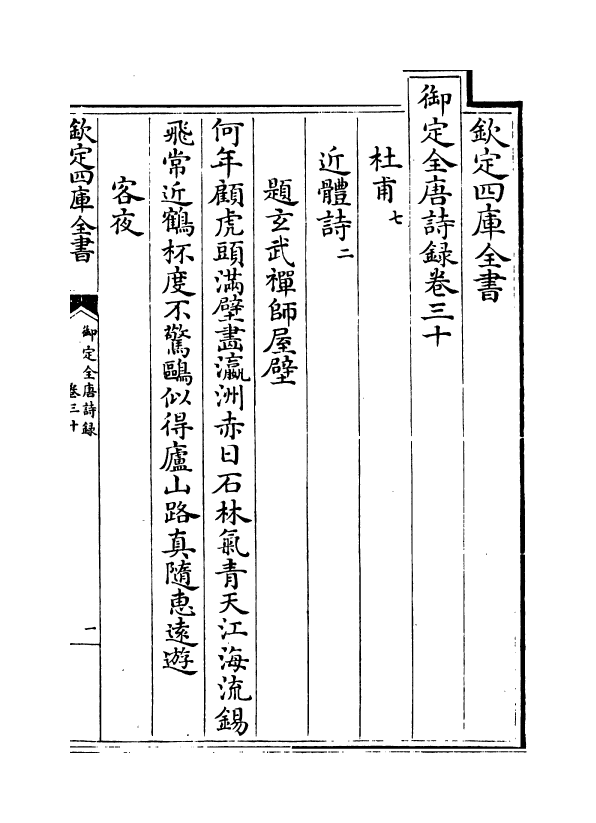 欽定四庫全書
御定全唐詩録卷三十
杜甫七
近體詩二
題玄武禪師屋壁
何年顧虎頭滿壁畫瀛洲赤日石林氣青天江海流錫
飛常近鶴杯度不驚鷗似得廬山路真隨惠遠遊
客夜
欽定四庫全書
御定全唐詩録
卷三十
一